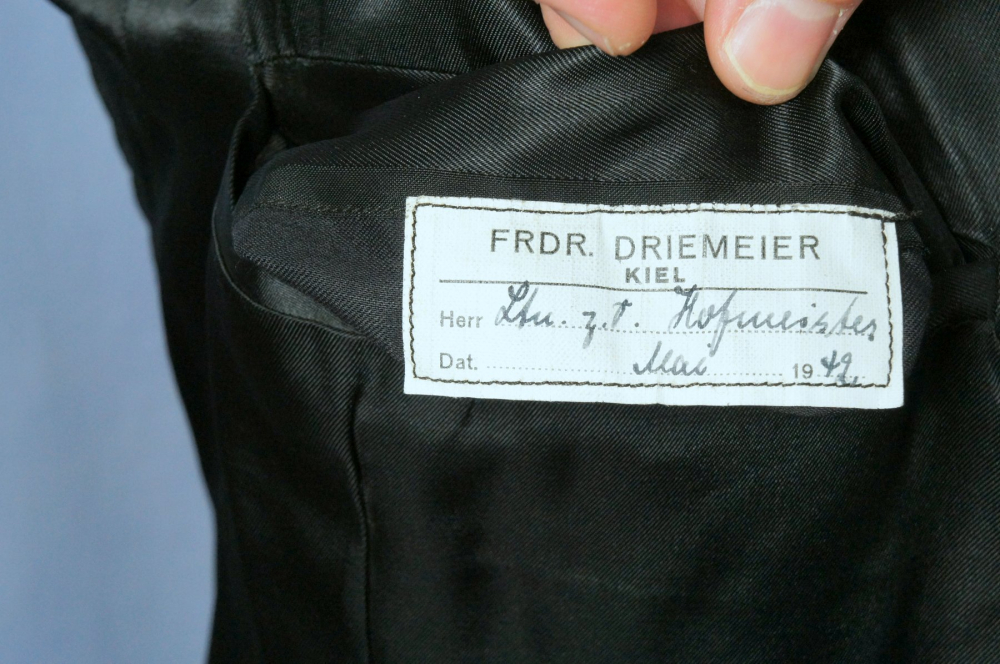 FRDR. DRIEMEIER
KIEL
Herr Ltn. z. S. Hofmeister
Dat. Mai 1942